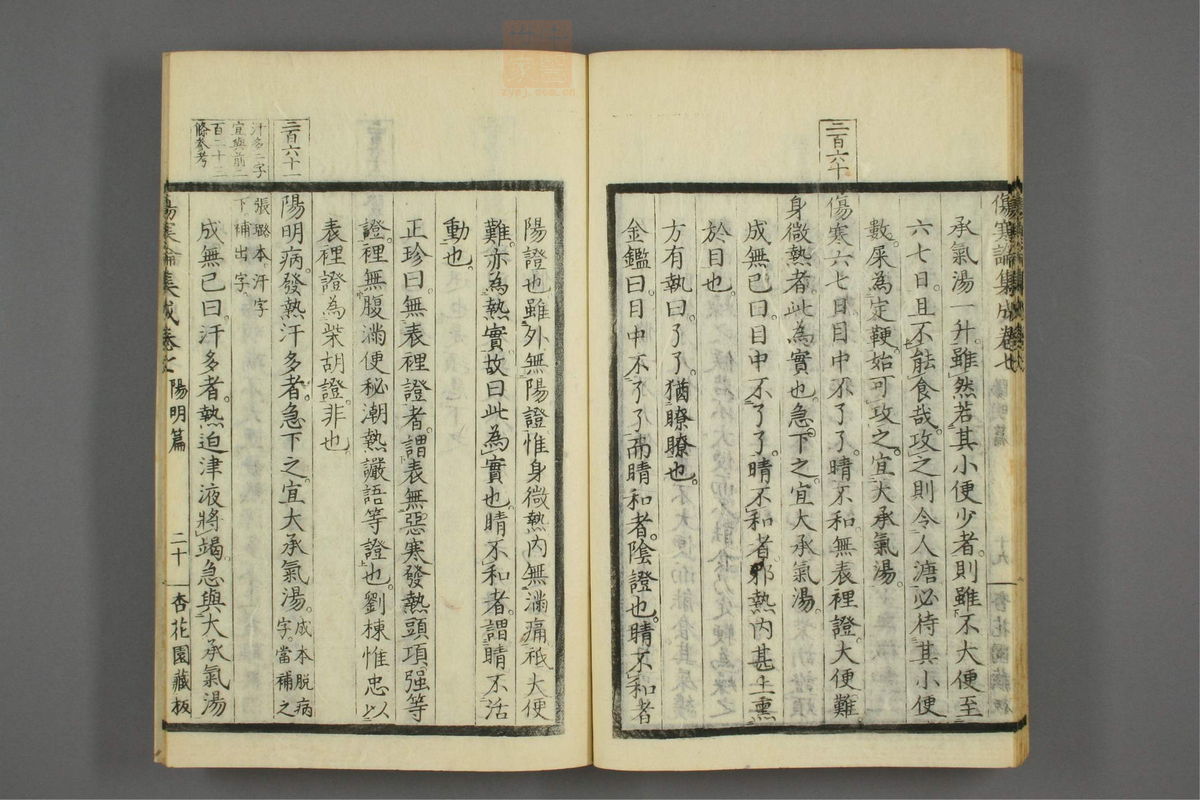 傷寒論集成卷七
承氣湯一升。雖然若其小便少者。則雖不大便至
六七日。且不能食哉。攻之則令人溏。必待其小便
數。屎爲定鞕。始可攻之。宜大承氣湯。
二百六十
傷寒六七日。目中不了了。睛不和。無表裡證。大便難。
身微熱者。此爲實也。急下之。宜大承氣湯。
成無已曰。目中不了了。睛不和者。邪熱内甚上熏
於目也。
方有執曰。了了。猶瞭瞭也。
金鑑曰。目中不了了而睛和者。陰證也。睛不和者
陽證也。雖外無陽證。惟身微熱。内無滿痛。祗大便
難。亦爲熱實。故曰此爲實也。睛不和者。謂睛不活
動也。
正珍曰。無表裡證者。謂表無惡寒發熱頭項强等
證。裡無腹滿便秘潮熱讝語等證也。劉棟惟忠以
表裡證爲柴胡證。非也
二百六十一
陽明病。發熱汗多者。急下之。宜大承氣湯。成本脫病
字。當補之
汗多二字
宜與前二
百二十二
條參考
張璐本汗字
下補出字
成無已曰。汗多者。熱迫津液將竭。急與大承氣湯
傷寒論集成卷七 陽明篇 二十 杏花園藏板